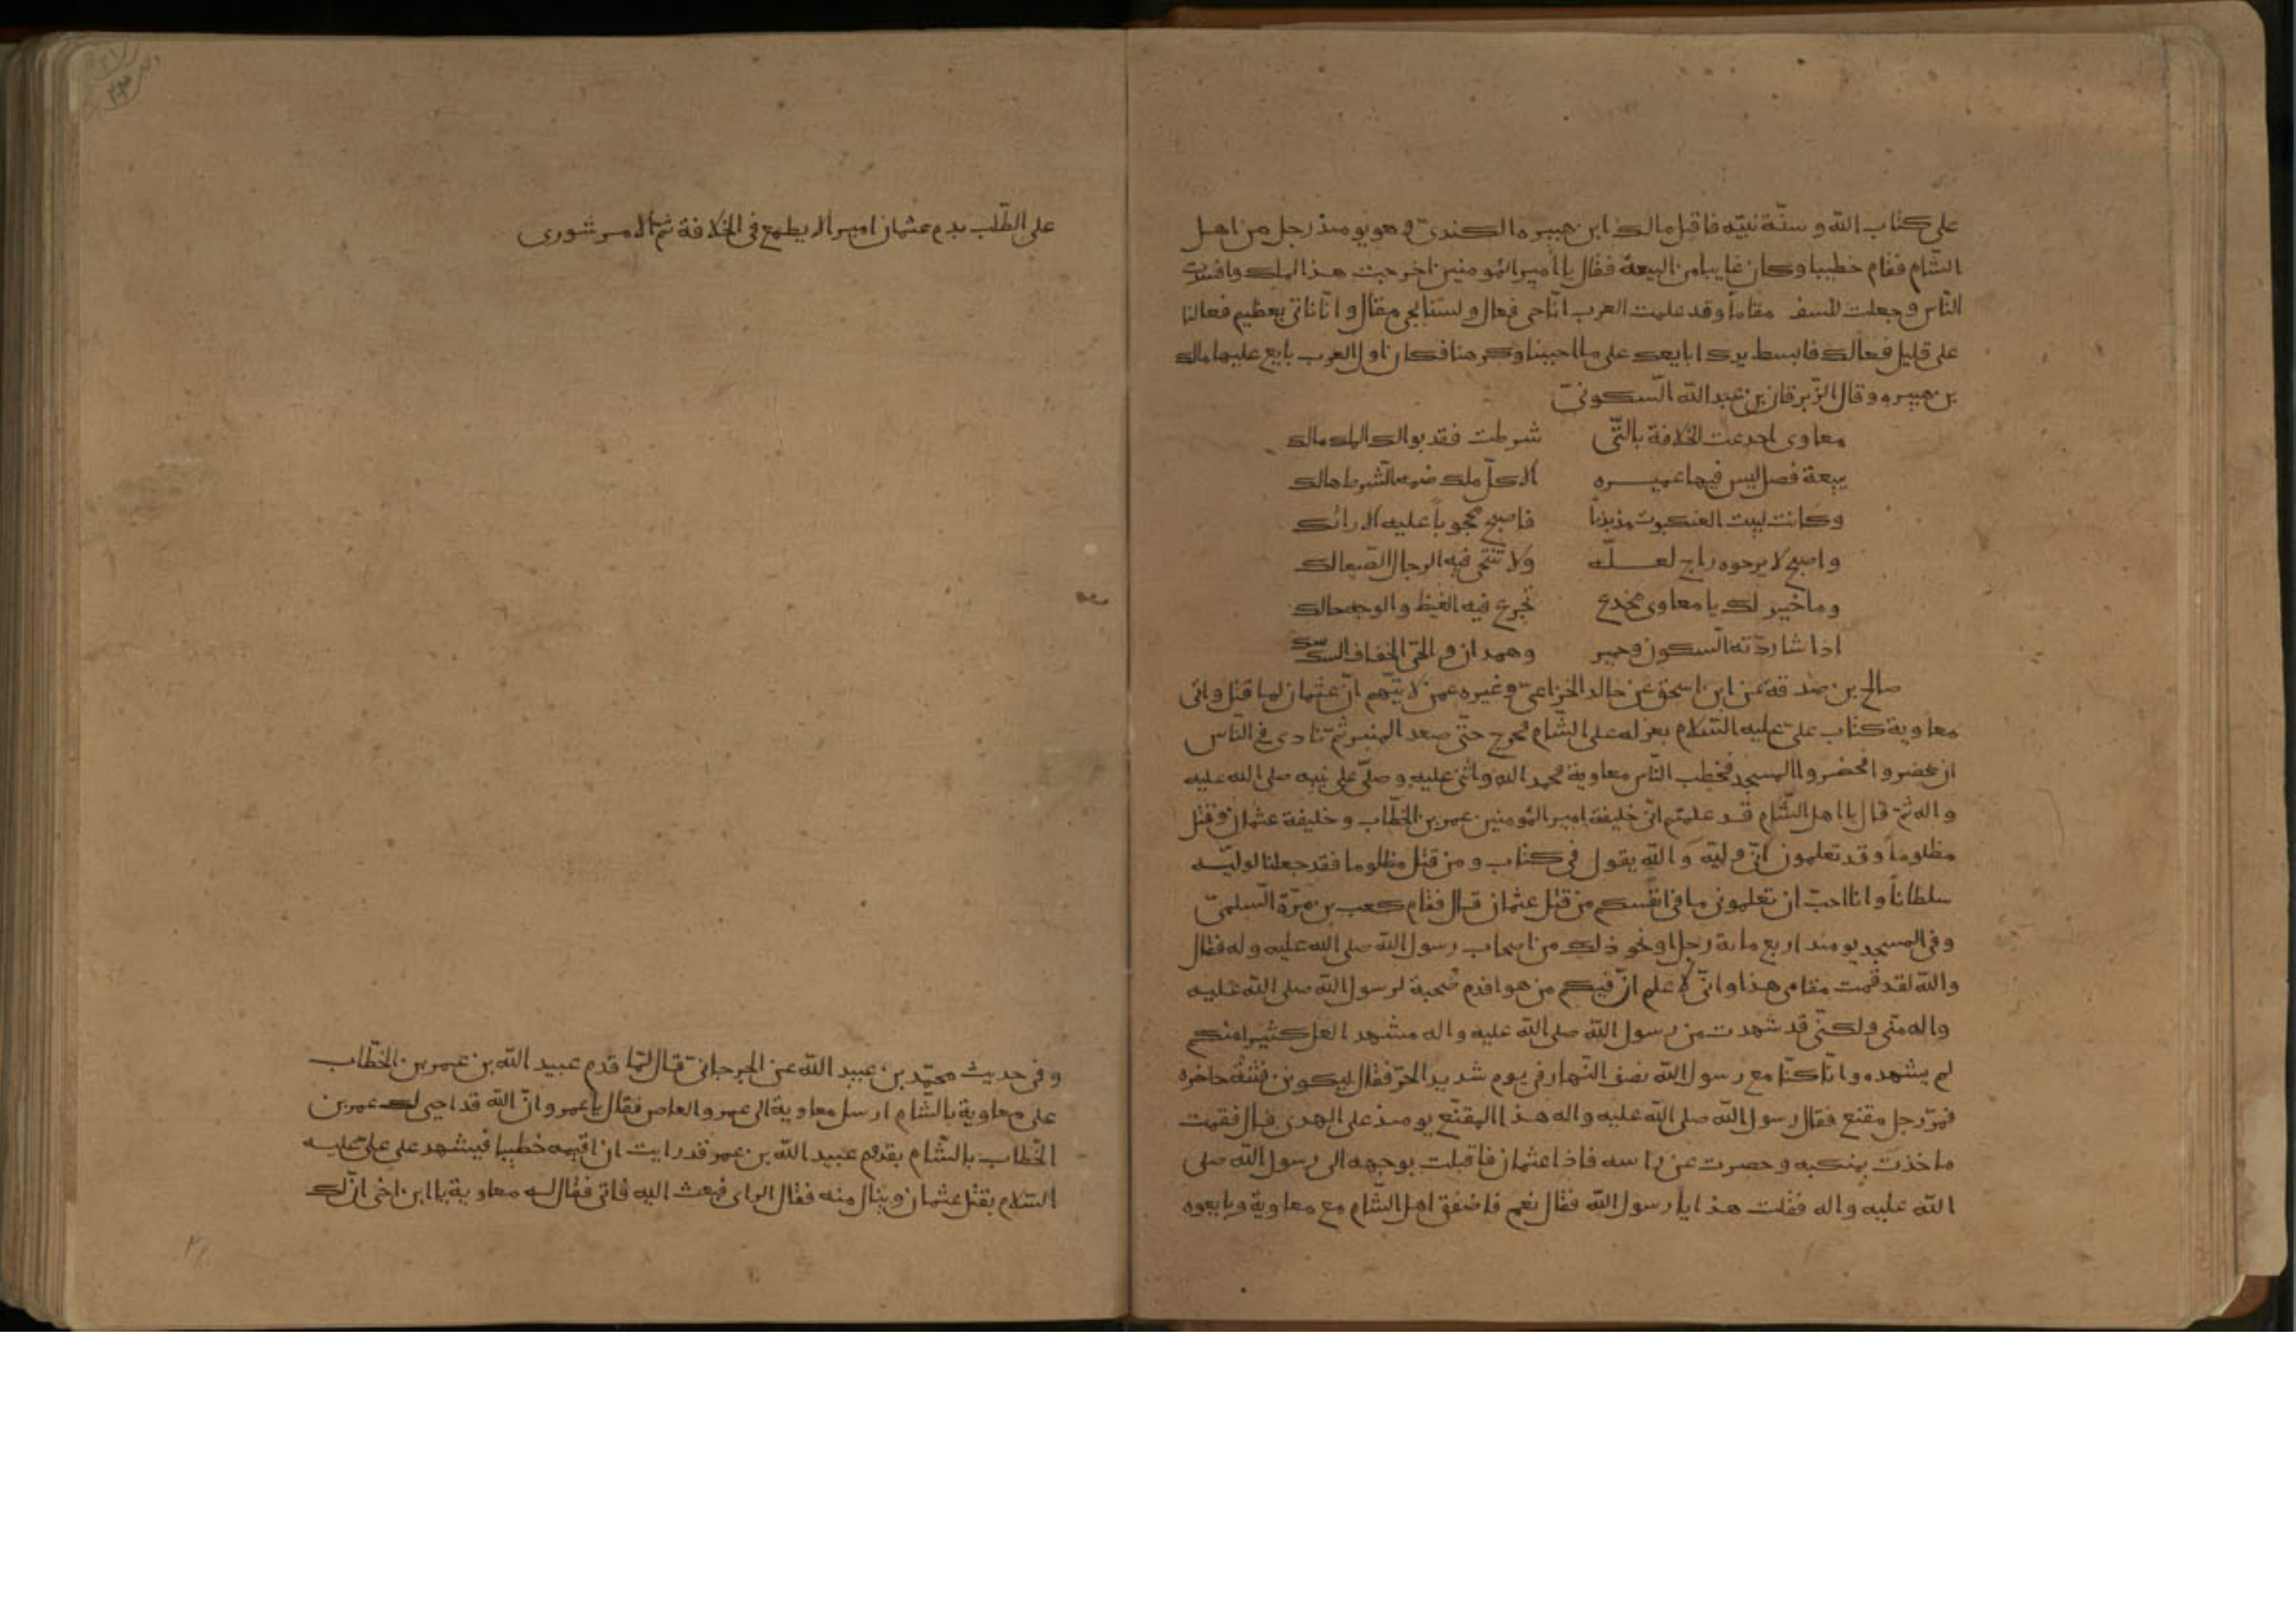 على كتاب الله و سنّة نبيّه فاقبل مالك ابن هبيره الكندىّ و هو يومئذ رجل من اهل
الشّام فقام خطيبا وكان غايبا من البيعة فقال يا امير المؤمنين اخرجت هذا الملك وافسدت
النّاس وجعلت للسفهاء مقاماً وقد علمت العرب انّا حى فعال ولسنا بحى مقال وانّا ناتى بعظيم فعالنا
على قليل فعالك فابسط يدك ابايعك على ما احببنا وكرهنا فكان اول العرب بايع عليها مالك
بن هبيره وقال الزّبرقان بن عبد الله السّكونىّ
معاوى اخدعت الخلافة بالتّى شرطت فقد بوا لك الملك مالك
ببيعة فصل ليس فيها غميزه الا كلّ ملك ضمه الشّرط هالك
وكانت لبيت العنكبوت مذبذباً فاصبح محجوباً عليه الارائك
واصبح لا يرجوه راج لعلّه ولا تنتحى فيه الرجال الصّعالك
وما خير لك يا معاوى مخدع تجرع فيه الغيظ والوجه حالك
اذا شاء ردّته السّكون وحمير وهمدان و الحىّ الخفاف السكاسك
صالح بن صدقة عن ابن اسحق عن خالد الخزاعىّ وغيره عمن لا يتّهم انّ عثمان لما قتل واتى
معاوية كتاب علىّ عليه السّلام بعزله على الشّام فخرج حتّى صعد المنبر ثمّ نادى فى النّاس
ان يحضروا فحضروا المسجد فخطب النّاس معاوية فحمد الله واثنى عليه وصلّى على نبيه صلى الله عليه
واله ثمّ قال يا اهل الشّام قد علمتم انّى خليفة امير المؤمنين عمر بن الخطّاب وخليفة عثمان وقتل
مظلوماً وقد تعلمون انّى وليّه والله يقول فى كتاب ومن قتل مظلوما فقد جعلنا لوليّه
سلطاناً وانا احبّ ان تعلمونى ما فى انفسكم من قتل عثمان قال فقام كعب بن مرّة السّلمىّ
وفى المسجد يومئذ اربع ماية رجل او نحو ذلك من اصحاب رسول الله صلى الله عليه وله فقال
والله لقد قمت مقامى هذا وانّى لاعلم انّ فيكم من هو اقدم صُحبة لرسول الله صلى الله عليه
واله منّى ولكنّى قد شهدت من رسول الله صلى الله عليه واله مشهد العل كثيرا منكم
لم يشهده وانّا كنّا مع رسول الله نصف النّهار فى يوم شديد الحرّ فقال ليكونن فتنة حاضره
فمرّ رجل مقنع فقال رسول الله صلى الله عليه واله هذا المقنّع يومئذ على الهدى قال فقمت
فاخذت بمنكبه وحصرت عن راسه فاذا عثمان فاقبلت بوجهه الى رسول الله صلى
الله عليه واله فقلت هذا يا رسول الله فقال نعم فاصفق اهل الشّام مع معاوية وبايعوه
على الطّلب بدم عثمان اميراً لا يطمع فى الخلافة ثمّ الامر شورى
وفى حديث محمّد بن عبيد الله عن الجرجانىّ قال لمّا قدم عبيد الله بن عمر بن الخطّاب
على معاوية بالشّام ارسل معاوية الى عمرو العاص فقال يا عمرو انّ الله قد احيى لك عمر بن
الخطّاب بالشّام بقدوم عبيد الله بن عمر وقد رايت ان اقيمه خطيبا فيشهد على علىّ عليه
السّلام بقتل عثمان وينال منه فقال الراى فبعث اليه فاتى فقال له معاوية يا ابن اخى انّ لك